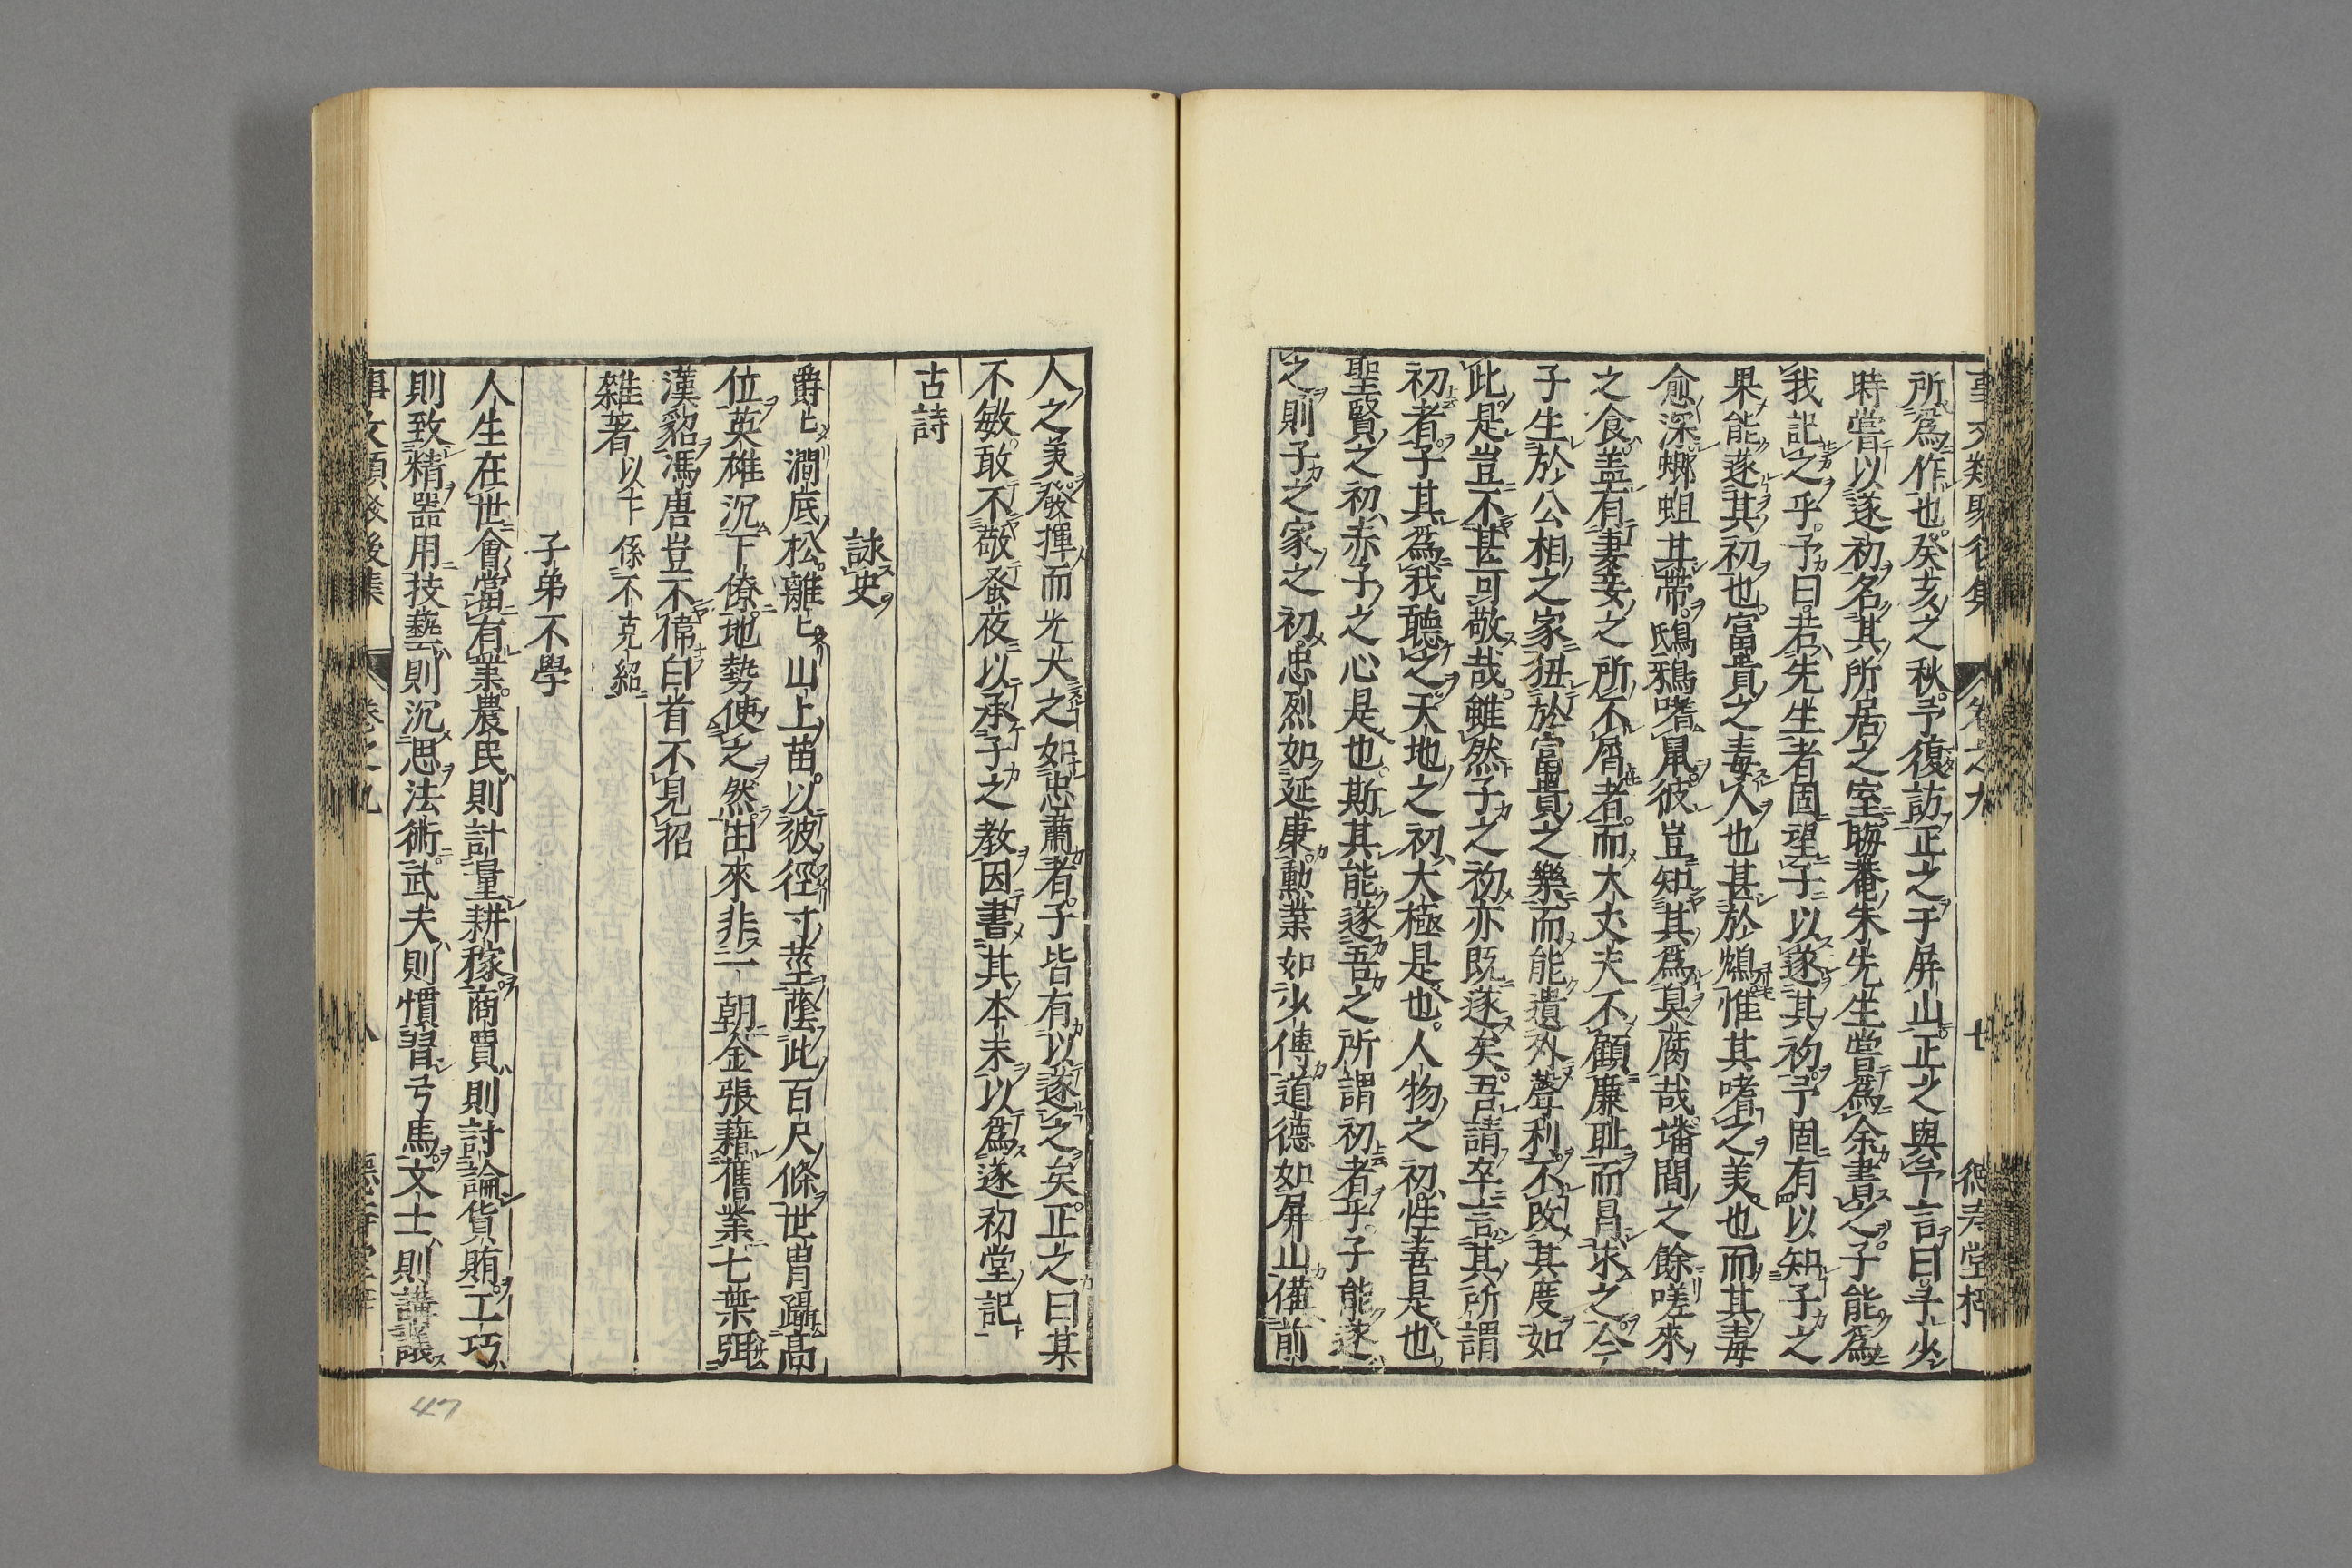 事文類聚後集 卷之九 七 德壽堂梓
所爲作也癸亥之秋予復訪正之于屏山正之與予言曰予少
時嘗以遂初名其所居之室晦菴朱先生嘗爲余書之子能爲
我記之乎予曰若先生者固望子以遂其初予固有以知子之
果能遂其初也富貴之毒人也甚於鴆惟其嗜之美也而其毒
愈深螂蛆其帶鴟鴉嗜鼠彼豈知其爲臭腐哉墦間之餘嗟來
之食盖有妻妾之所不屑者而大丈夫不顧廉耻而冒求之今
子生於公相之家狃於富貴之樂而能遺外聲利不改其度如
此是豈不甚可敬哉雖然子之初亦既遂矣吾請卒言其所謂
初者子其爲我聽之天地之初大極是也人物之初性善是也
聖賢之初赤子之心是也斯其能遂吾之所謂初者乎子能遂
之則子之家之初忠烈如延康勲業如少傅道德如屏山備前
人之美發揮而光大之如忠肅者子皆有以遂之矣正之曰某
不敏敢不敬蚤夜以承子之教因書其本末以爲遂初堂記
古詩
詠史
爵〻澗底松離〻山上苗以彼徑寸莖蔭此百尺條世冑躡高
位英雄沉下僚地勢使之然由來非一朝金張藉舊業七葉珥
漢貂馮唐豈不偉白首不見招
雜著 以下係不克紹
子弟不學
人生在世會當有業農民則計量耕稼商賈則討論貨賄工巧
則致精器用技藝則沉思法術武夫則慣習弓馬文士則講議
事文類聚後集 卷之九 八 德壽堂梓
47